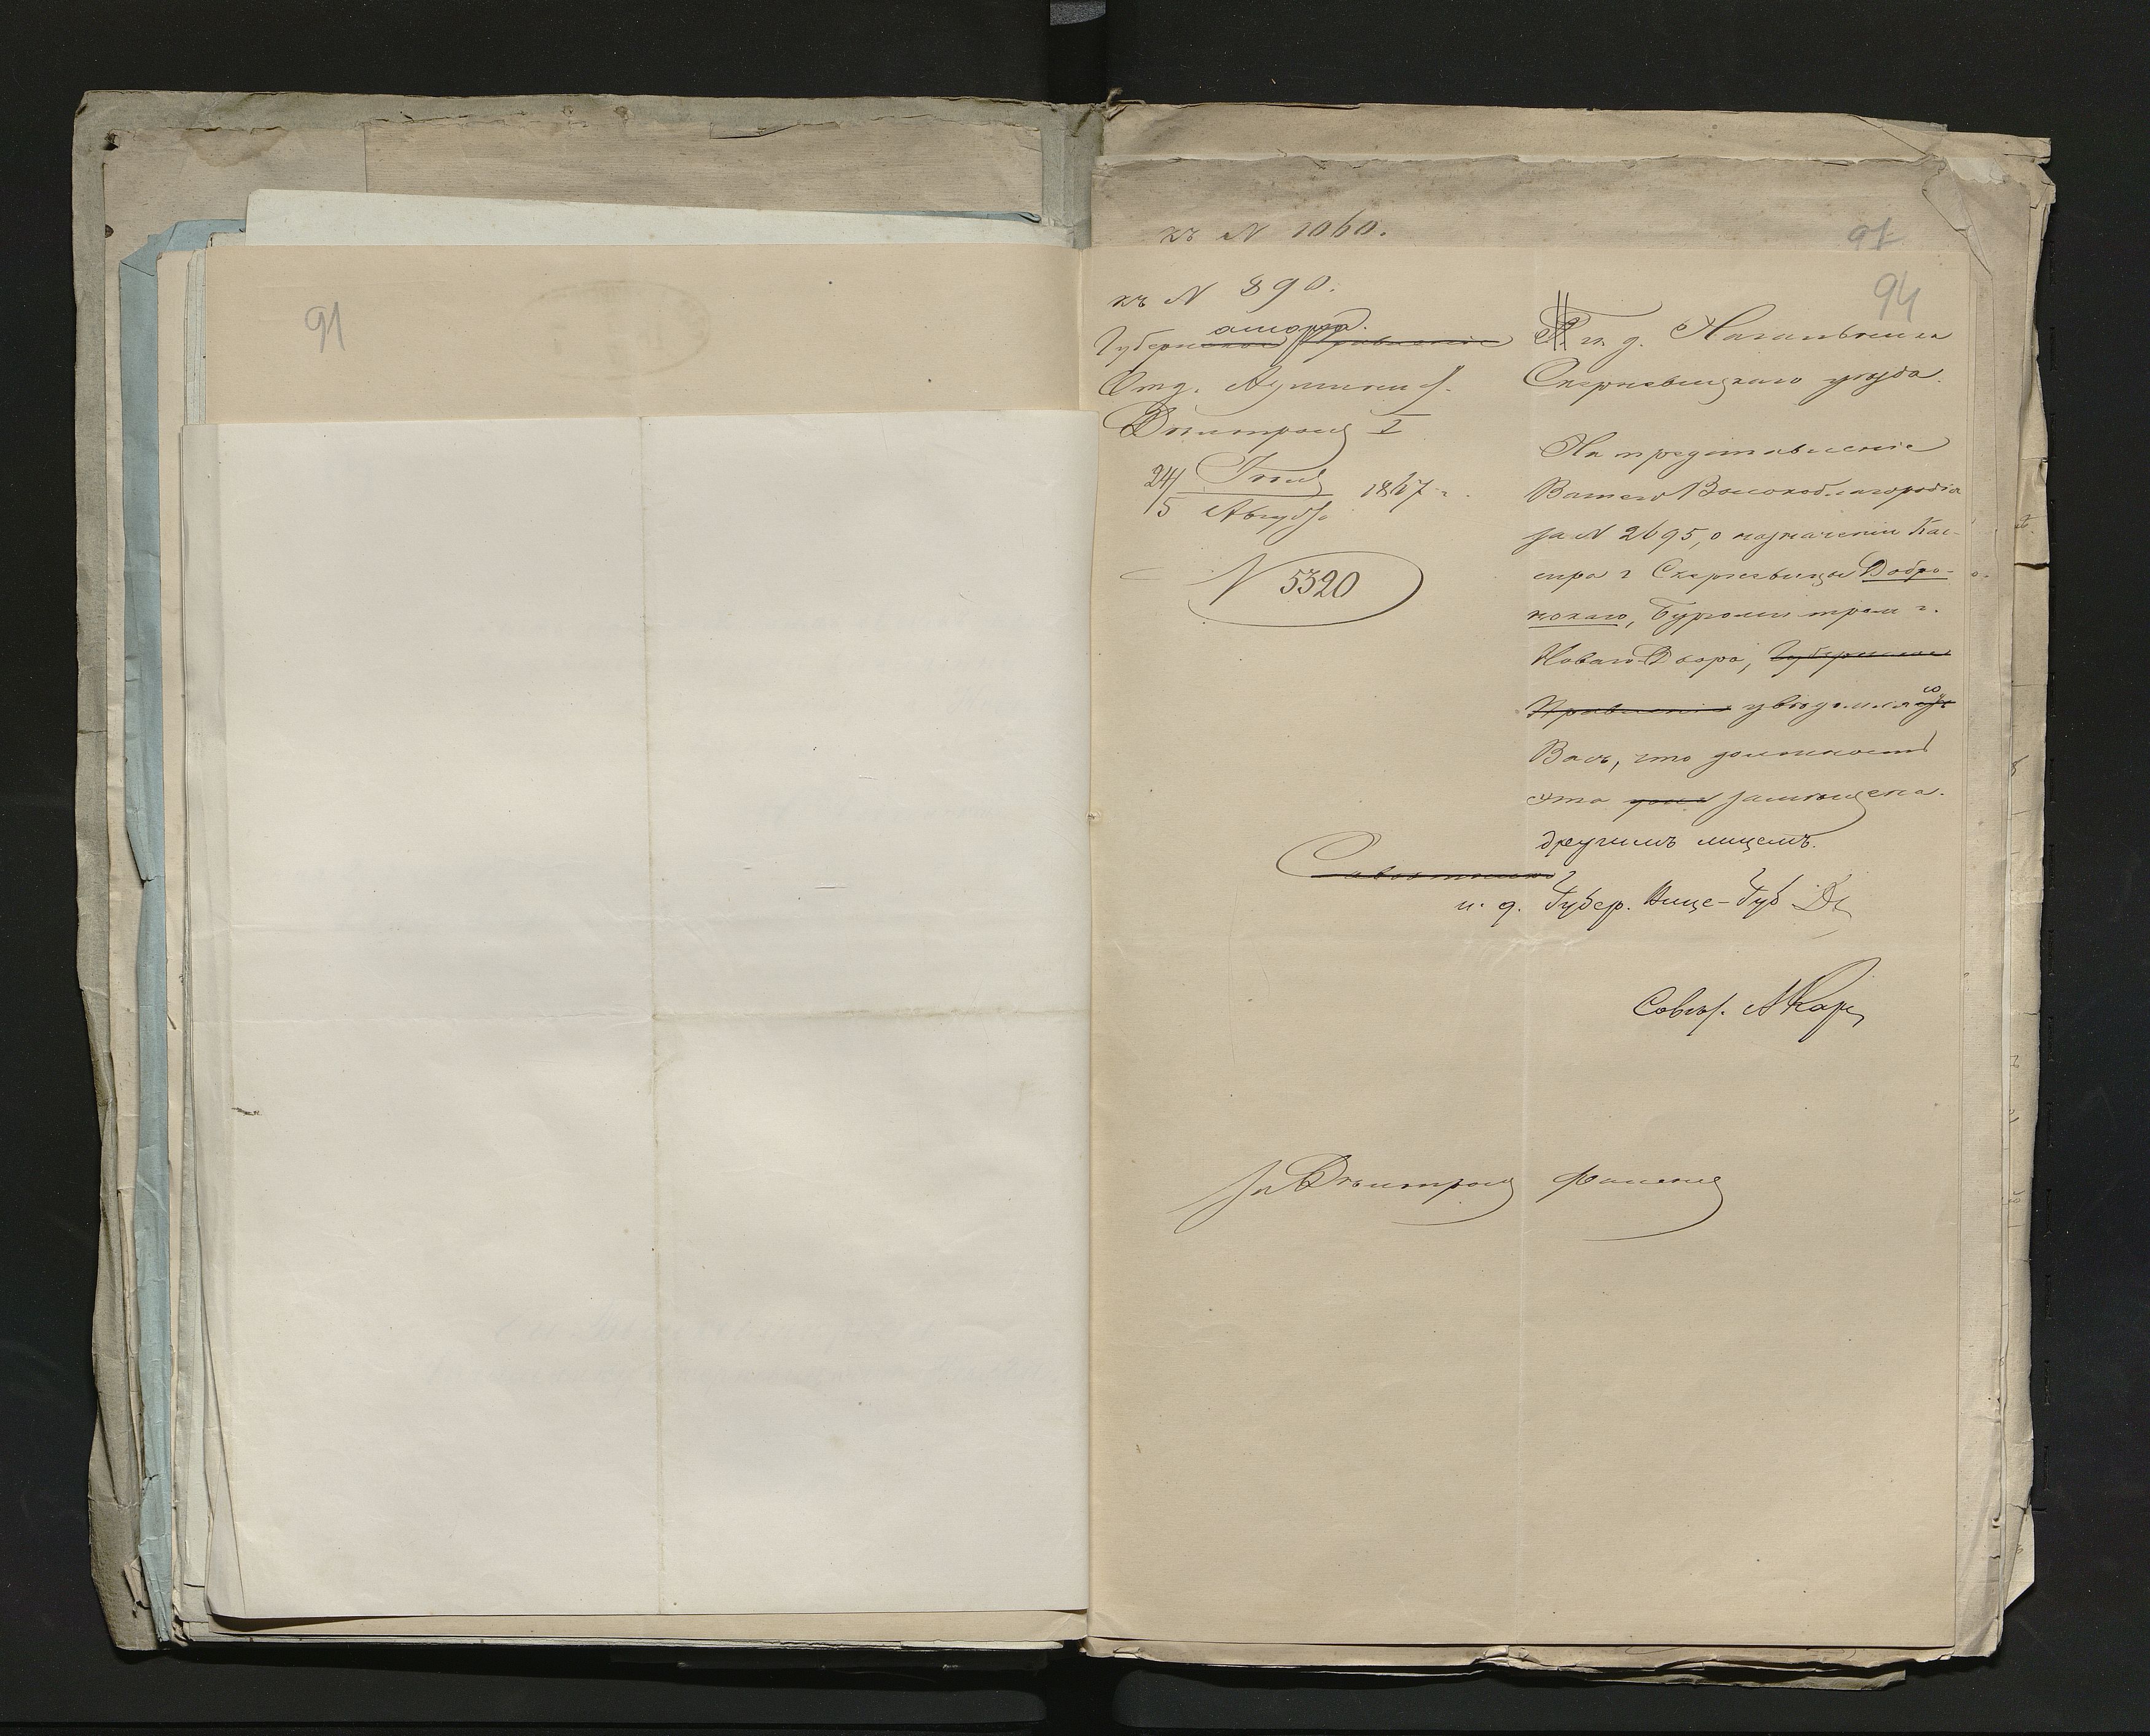 91
къ N 1060.
къ N 890.
Губерн~~ское Правленіе~~ атора.
Отд. Админист.
24/5 Іюля/Августа 1867 г.
N 5320
94
И. д. Начальника
Скерневицкаго уѣзда.
На представленіе
Вашего Высокоблагородія
за N 2695, о назначеніи Кас-
сира г. Скерневицы Добро-
нокаго, Бургомистромъ г.
Новаго-Двора, ~~Губернское~~
~~Правленіе~~ увѣдомляю
Васъ, что должность
эта ~~уже~~ замѣщена
другимъ лицемъ.
~~Совѣтникъ~~
и. д. Губер. Вице-Губ
Совѣт.
за